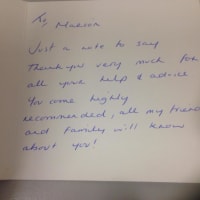 To
Just a note to say
Thankyou very much for
all your help & advice
You come highly
recommended, all my friends
and family will know
about you!